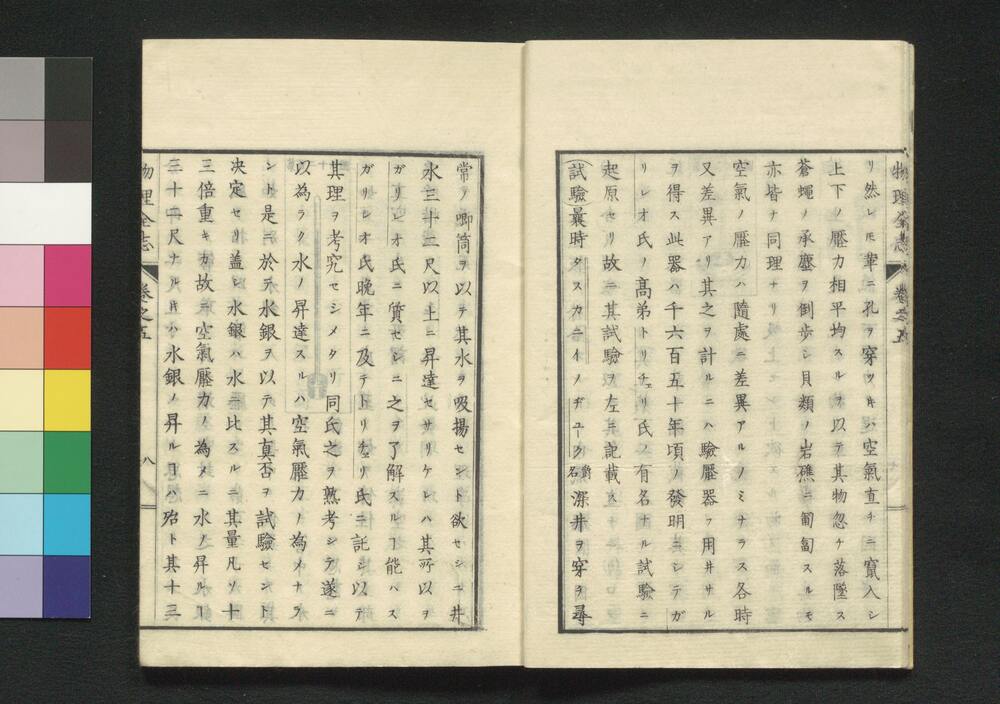 物理全志 卷之五
リ然レ𪜈罩ニ孔ヲ穿ツ片ハ空氣直チニ竄入シ
上下ノ壓力相平均スルヲ以テ其物忽チ落墜ス
蒼蠅ノ承塵ヲ倒歩シ貝類ノ岩礁ニ匍匐スルモ
亦皆ナ同理ナリ
空氣ノ壓力ハ隨處ニ差異アルノミナラス各時
又差異アリ其之ヲ計ルニハ驗壓器ヲ用井サル
ヲ得ス此器ハ千六百五十年頃ノ發明ニシテガ
リレオ氏ノ髙弟トリチェリ氏ノ有名ナル試驗ニ
起原セリ故ニ其試驗ヲ左ニ記載ス
(試驗)曩時タスカニイノヂューク爵名深井ヲ穿ヲ尋
常ノ喞筒ヲ以テ其水ヲ吸揚セント欲セシニ井
水三十二尺以上ニ昇達セサリケレハ其所以ヲ
ガリレオ氏ニ質セシニ之ヲ了解スルヿ能ハス
ガリレオ氏晩年ニ及テトリチェリ氏ニ託シ以テ
其理ヲ考究セシメタリ同氏之ヲ熟考シテ遂ニ
以為ラク水ノ昇達スルハ空氣壓力ノ為メナラ
ント是ニ於テ水銀ヲ以テ其真否ヲ試驗セント
决定セリ盖シ水銀ハ水ニ比スルニ其量凡ソ十
三倍重キカ故ニ空氣壓力ノ為メニ水ノ昇ルヿ
三十二尺ナル片ハ水銀ノ昇ルヿハ殆ト其十三
物理全志 卷之五 八